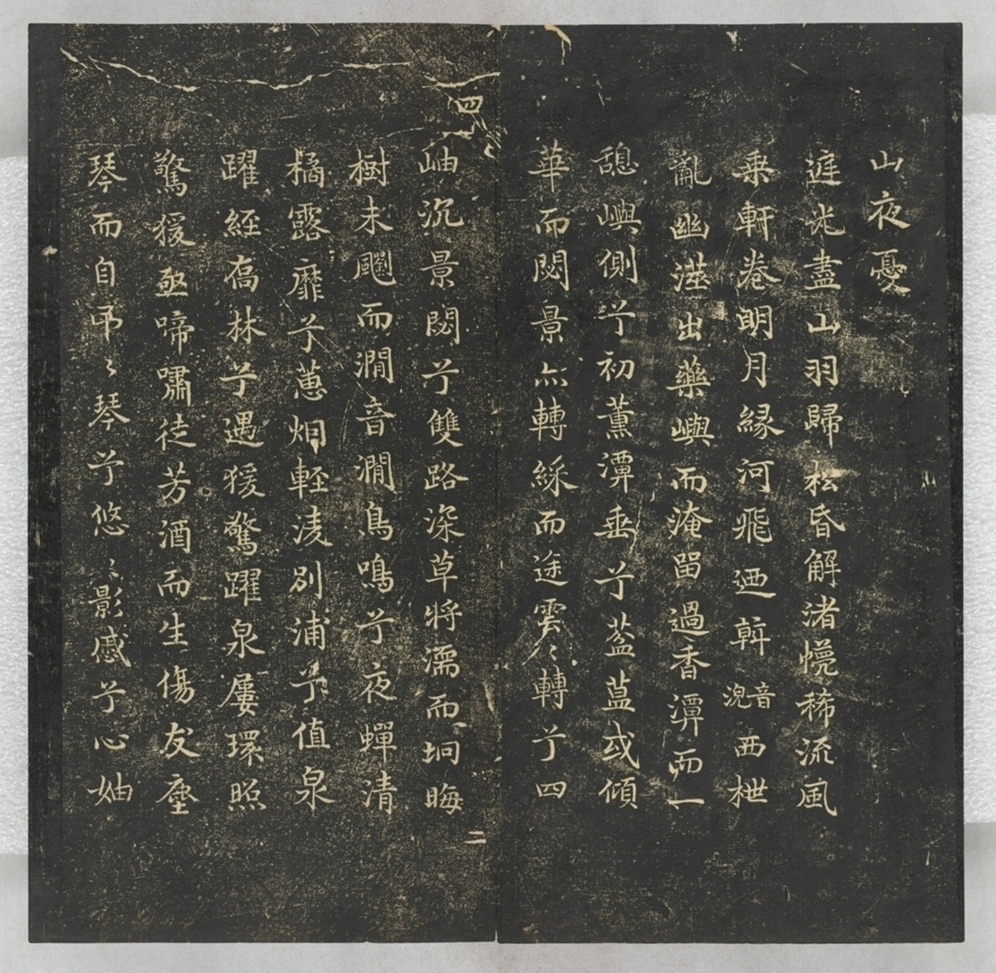 山夜憂
庭光盡山羽歸松昏解渚幔稀流風
乘軒卷明月縁河飛迺斡音浼西枻
亂幽澨出藥嶼而淹留過香潭而一
憩嶼側兮初薰潭垂兮葐蒀或傾
華而閟景亦轉綵而途雲〻轉兮四
岫沉景閟兮雙路深草將濡而坰晦
樹未飈而澗音澗鳥鳴兮夜蟬清
橘露靡兮蕙烟輕凌別浦兮值泉
躍經高林兮遇猨驚躍泉屢環照
驚猨亟啼嘯徒芳酒而生傷友塵
琴而自弔〻琴兮悠〻影慼兮心妯
二